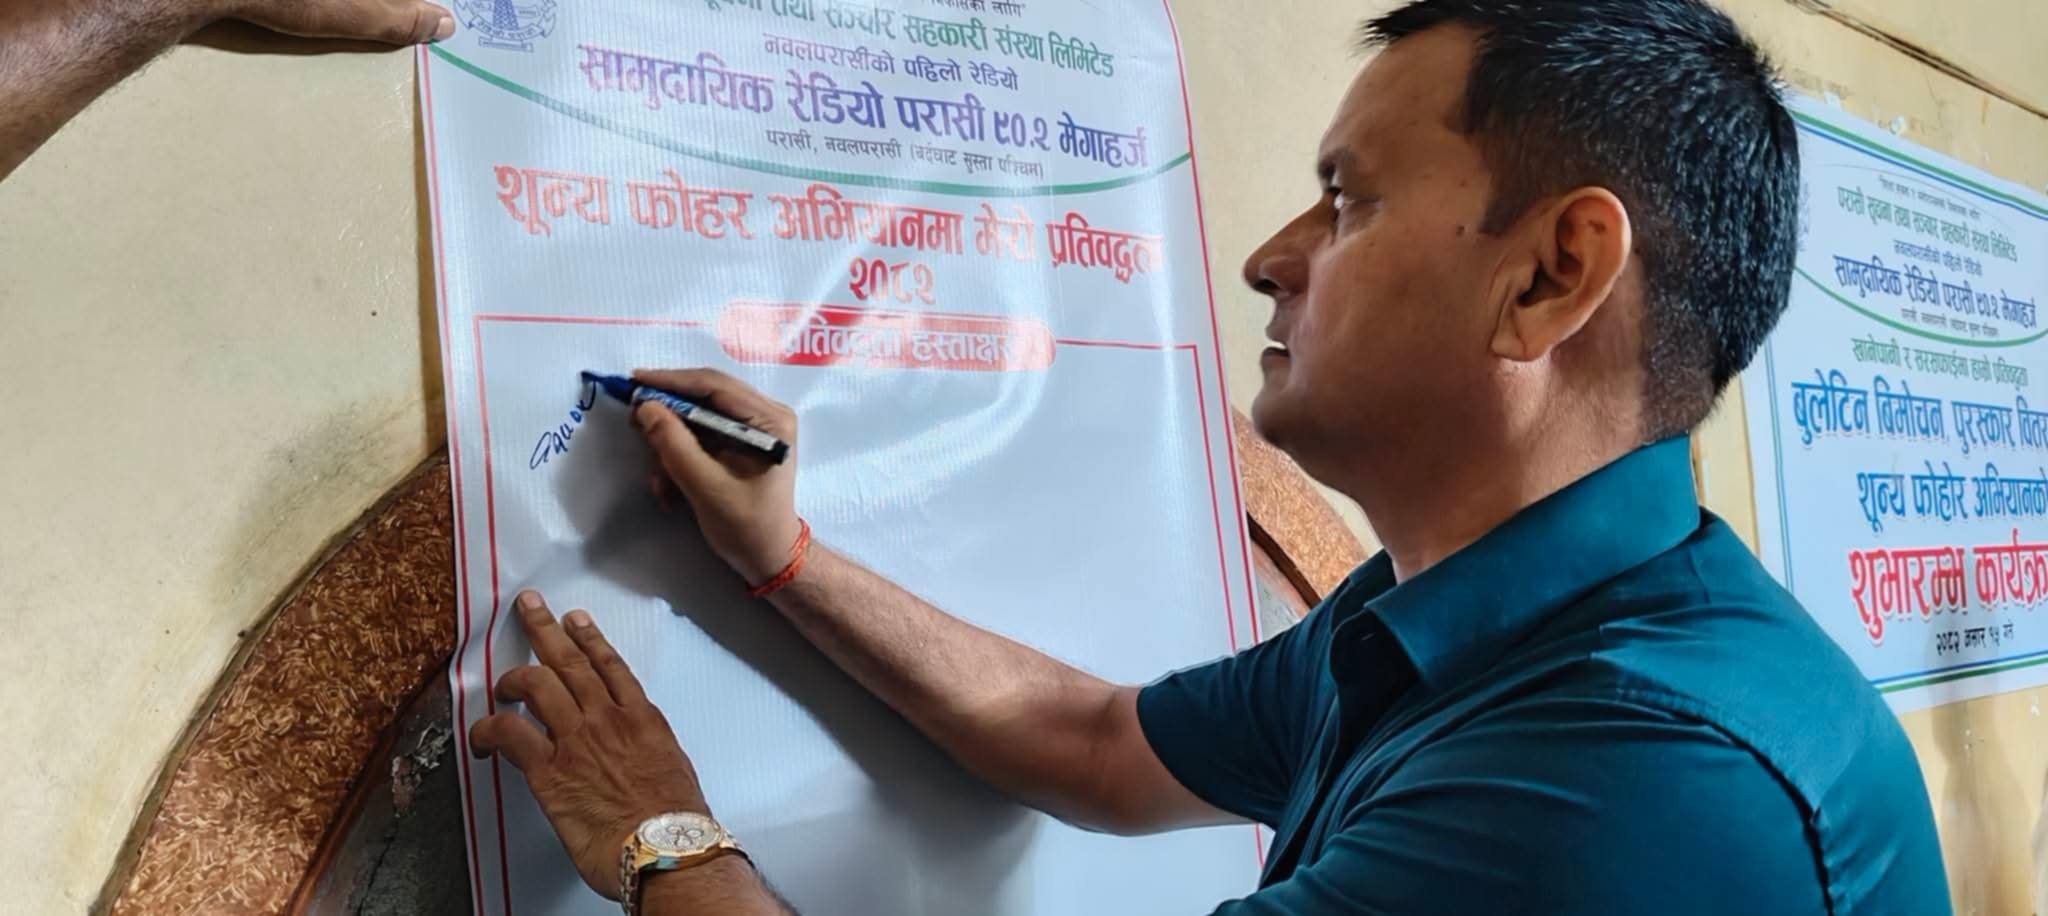 तथा सञ्चार सहकारी संस्था लिमिटेड
नवलपरासीको पहिलो रेडियो
सामुदायिक रेडियो परासी ९०.२ मेगाहर्ज
परासी, नवलपरासी (बर्दघाट सुस्ता पश्चिम)
शून्य फोहर अभियानमा मेरो प्रतिवद्धता
२०८२
प्रतिवद्धता हस्ताक्षर
परासी सूचना तथा सञ्चार सहकारी संस्था लिमिटेड
नवलपरासीको पहिलो रेडियो
सामुदायिक रेडियो परासी ९०.२ मेगाहर्ज
खानेपानी र सरसफाईमा हाम्रो प्रतिवद्धता
बुलेटिन बिमोचन, पुरस्कार वितर
शून्य फोहोर अभियानको
शुभारम्भ कार्यक्र
२०८२ असार १५ गते